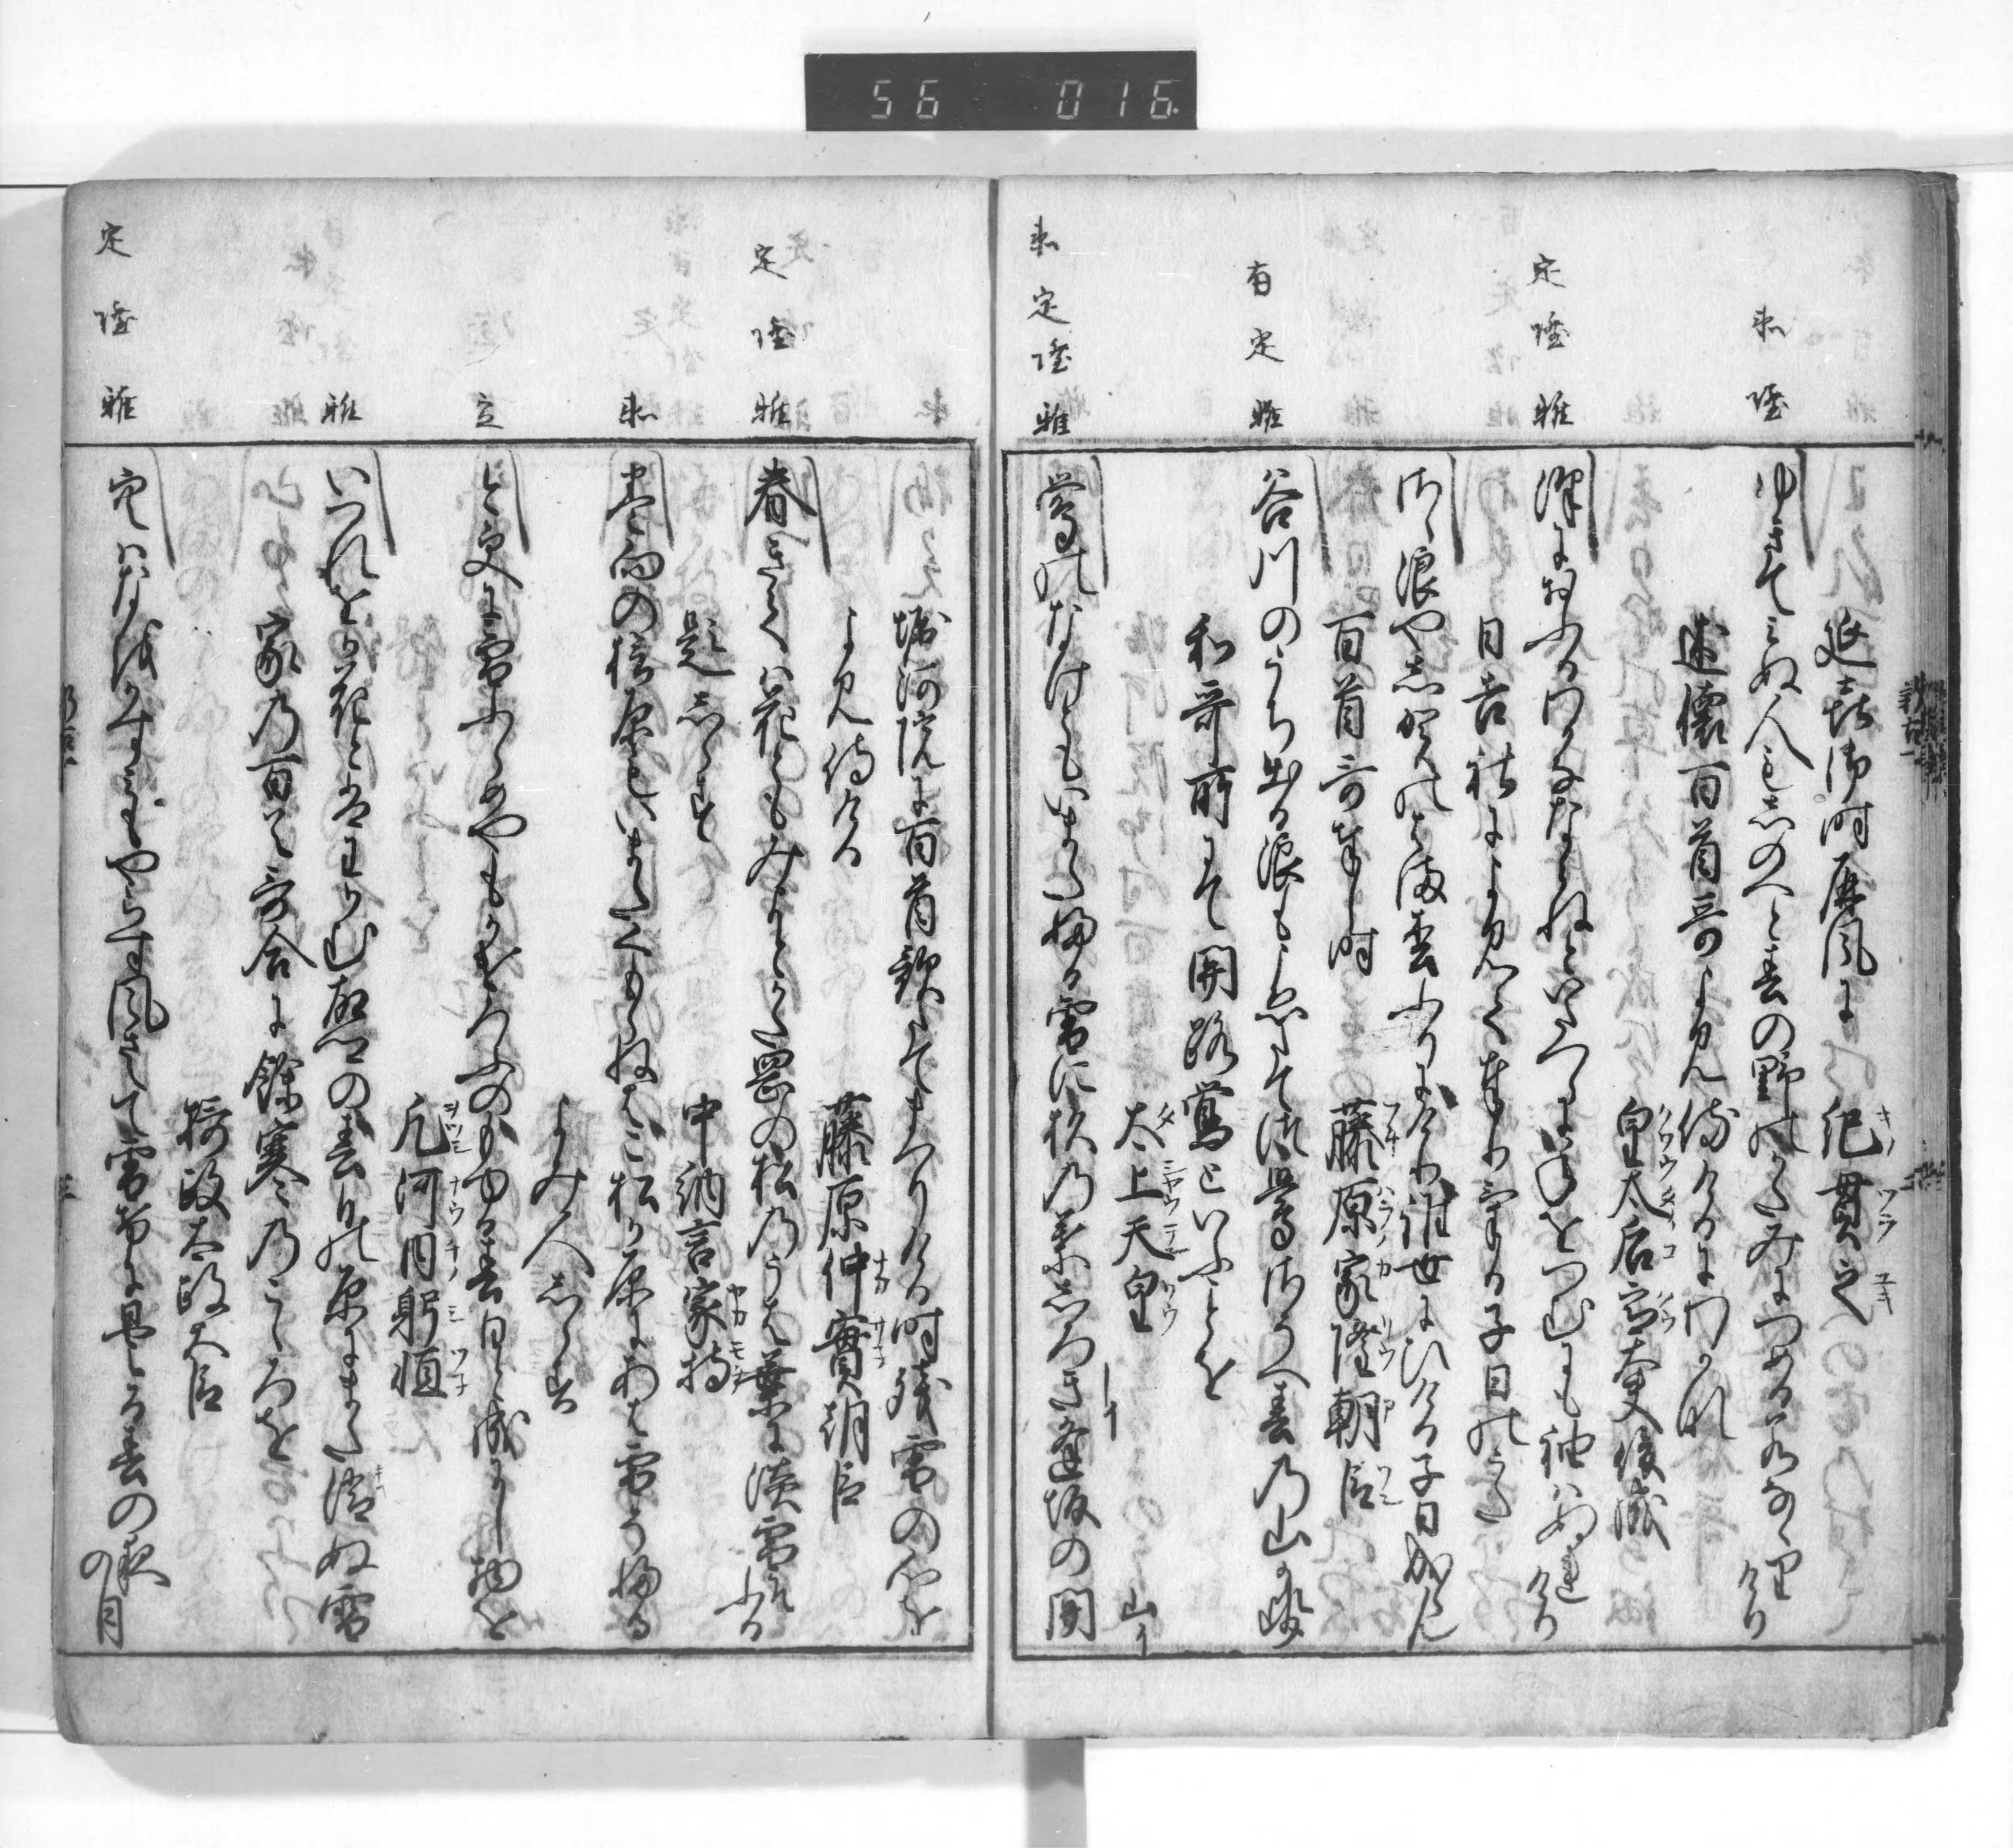 衣隆
定隆雅
有定雅
衣定隆雅
延喜御時屏風に　紀貫之
ゆきてみぬ人もしのへと春の野のかたみにつめる若な也けり
述懐百首哥よみ侍けるにわかな
皇太后宮大夫俊成
澤に生るわかなならねといたつらに年をつむにも袖はぬれけり
日吉社によみて奉りける子日のうた
さゝ浪や志賀のはま松ふりにけり誰世にひける子日成らん
百首哥奉し時　藤原家隆朝臣
谷川のうち出る浪もこゑたてつ鶯さそへ春乃山かせ
和哥所にて関路鶯といふことを
太上天皇
鶯のなけともいまたふる雪に杉乃葉しろき逢坂の関
定隆雅
衣
定
雅
定隆雅
堀河院に百首歌たてまつりける時残雪の心を
よみ侍ける　藤原仲實朝臣
春きては花ともみよとかた岡の松乃うは葉に淡雪そふる
題しらす　中納言家持
まきもくの檜原もいまたくもらねはこ松か原にあは雪そふる
よみ人しらす
今更に雪ふらめやもかけろふのもゆる春日と成にし物を
凡河内躬恒
いつれをか花とはわかむ故郷の春日の原にまた消ぬ雪
家乃百首哥合に餘寒乃こゝろを
摂政太政大臣
空はなほかすみもやらす風さえて雪けに曇る春の夜の月